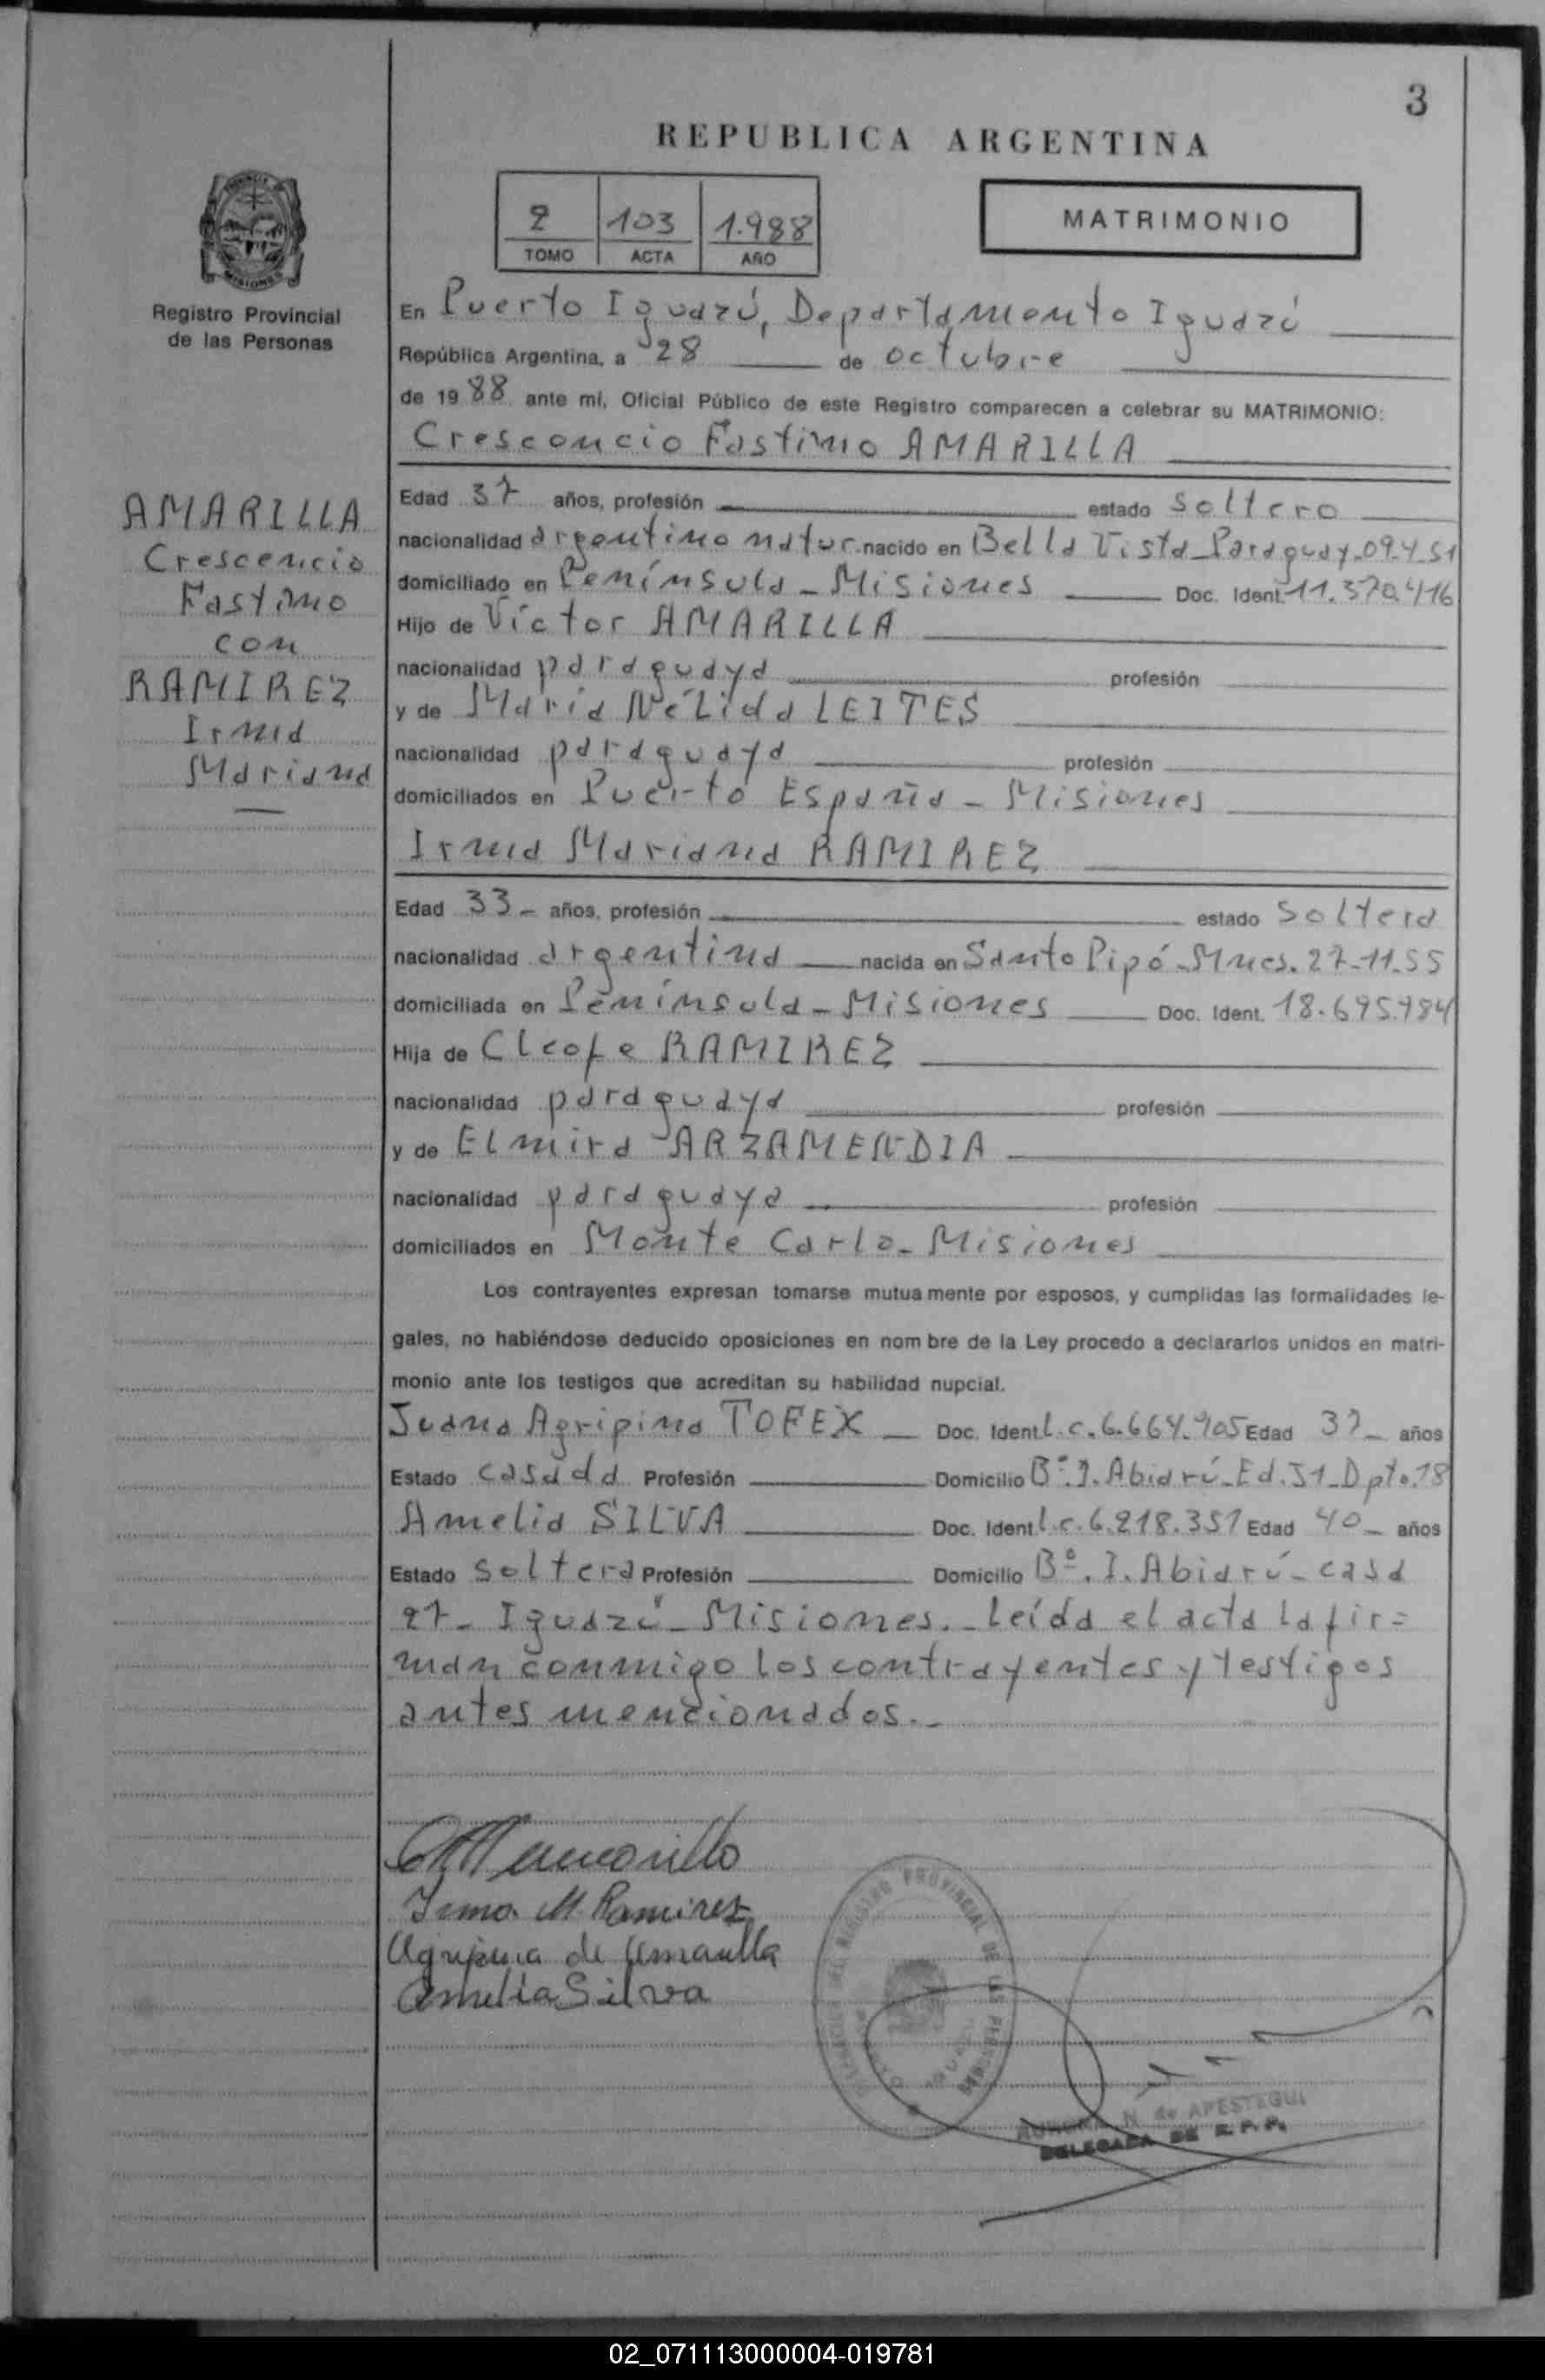 3
REPUBLICA ARGENTINA
2 103 1.988
TOMO ACTA AÑO
MATRIMONIO
PROVINCIA
MISIONES
Registro Provincial
de las Personas
AMARILLA
Crescencio
Fastino
con
RAMIREZ
Irma
Mariana
En Puerto Iguazú, Departamento Iguazú
República Argentina, a 28 de octubre
de 1988 ante mí, Oficial Público de este Registro comparecen a celebrar su MATRIMONIO:
Crescencio Fastino AMARILLA
Edad 37 años, profesión estado soltero
nacionalidad argentino natur. nacido en Bella Vista_Paraguay_09.4.51
domiciliado en Península_Misiones Doc. Ident. 11.370.416
Hijo de Víctor AMARILLA
nacionalidad paraguaya profesión
y de María Nélida LEITES
nacionalidad paraguaya profesión
domiciliados en Puerto España_Misiones
Irma Mariana RAMIREZ
Edad 33_ años, profesión estado soltera
nacionalidad argentina nacida en Santo Pipó_Mnes. 27-11-55
domiciliada en Península_Misiones Doc. Ident. 18.695.984
Hija de Cleofe RAMIREZ
nacionalidad paraguaya profesión
y de Elmira ARZAMENDIA
nacionalidad paraguaya profesión
domiciliados en Monte Carlo_Misiones
Los contrayentes expresan tomarse mutuamente por esposos, y cumplidas las formalidades le-
gales, no habiéndose deducido oposiciones en nombre de la Ley procedo a declararlos unidos en matri-
monio ante los testigos que acreditan su habilidad nupcial.
Juana Agripina TOFEX Doc. Ident. L.c.6.664.905 Edad 37_ años
Estado casada Profesión Domicilio Bº.I.Abiarú_Ed.51_Dpto.18
Amelia SILVA Doc. Ident. L.c.6.218.351 Edad 40_ años
Estado soltera Profesión Domicilio Bº.I.Abiarú_casa
27_Iguazú_Misiones._Leída el acta la fir=
man conmigo los contrayentes y testigos
antes mencionados._
Irma M. Ramirez
Agripina de Amarilla
Amelia Silva
REGISTRO PROVINCIAL DE LAS PERSONAS
N. de APESTEGUI
DELEGADA DE R. P. P.
02_071113000004-019781